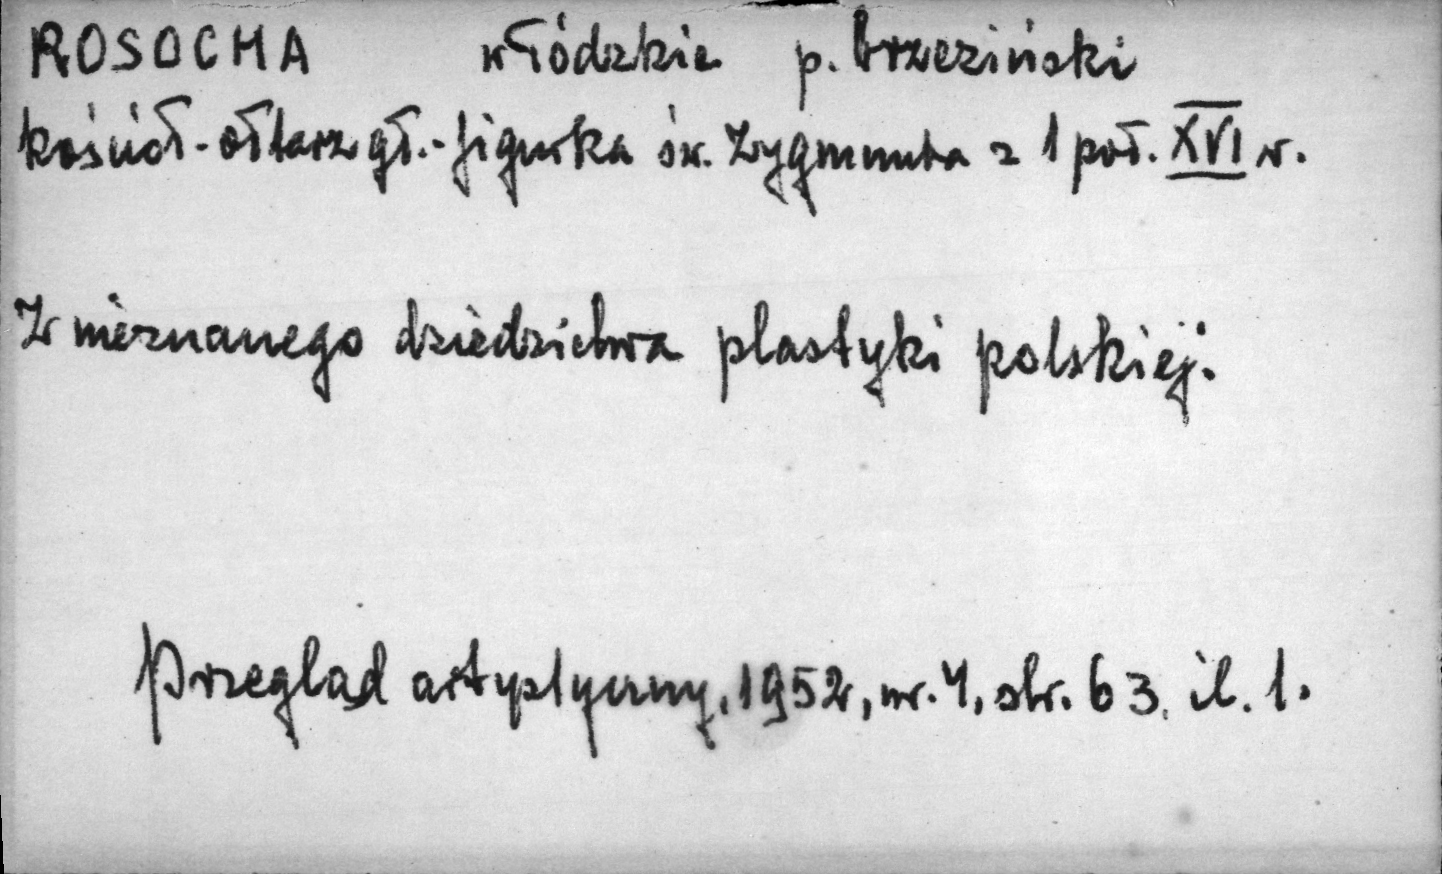 ROSOCHA w łódzkie p. brzeziński
kościół - ołtarz gł. - figurka św. Zygmunta z 1 poł. XVI w.
Z nieznanego dziedzictwa plastyki polskiej.
Przegląd artystyczny, 1952, nr. 4, str. 63, il. 1.